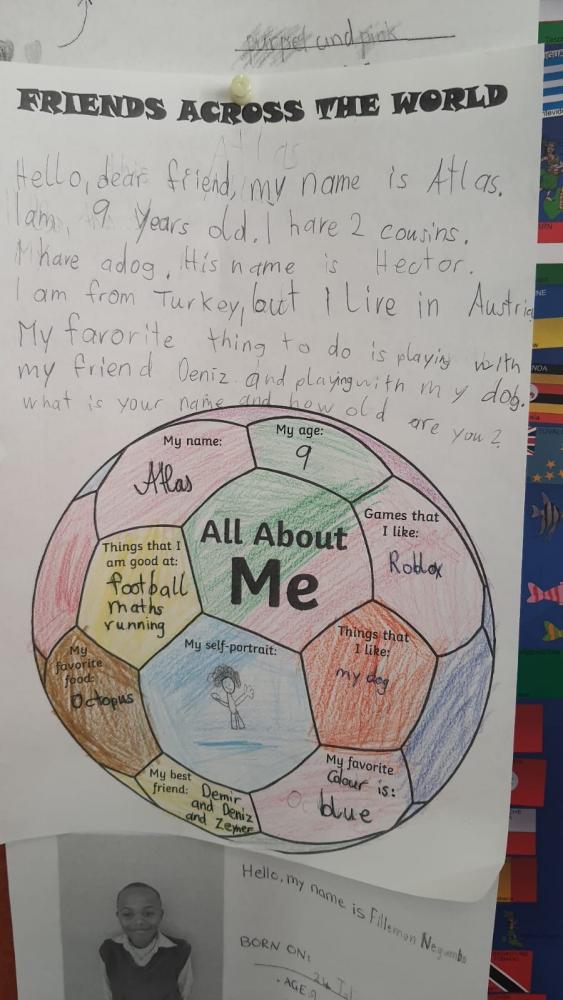 purpel and pink
FRIENDS ACROSS THE WORLD
Atlas
Hello, dear friend, my name is Atlas.
I am, 9 years old. I have 2 cousins.
I have a dog. His name is Hector.
I am from Turkey, but I Live in Austria
My favorite thing to do is playing with
my friend Deniz and playing with my dog.
what is your name and how old are you?
My name:
Atlas
My age:
9
Games that
I like:
Roblox
All About
Me
Things that I
am good at:
football
maths
running
My
favorite
food:
Octopus
My self-portrait:
Things that
I like:
my dog
My best
friend: Demir
and Deniz
and Zeyner
My favorite
Colour is:
blue
Hello, my name is Fillemon Negumbo
BORN ON:
AGE 9